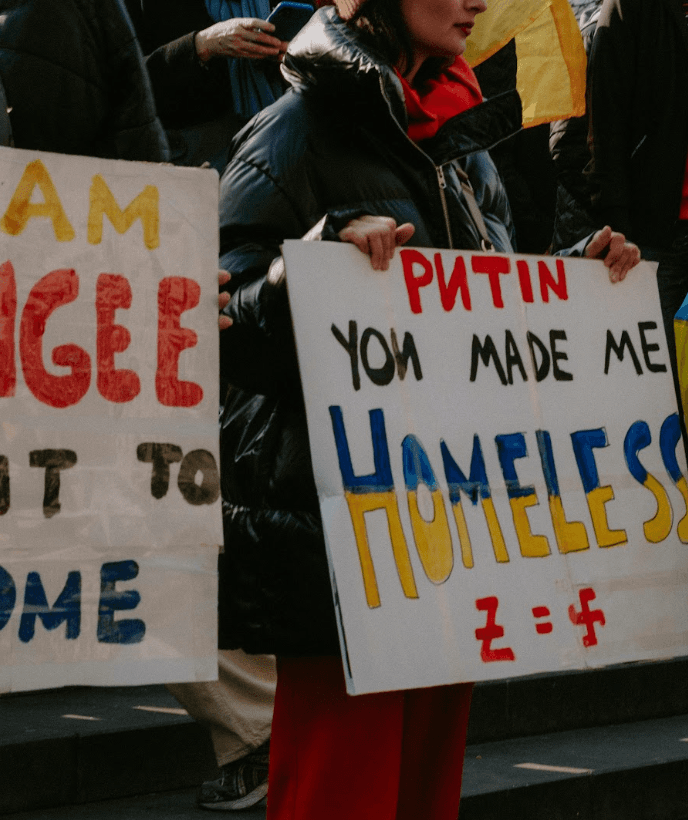 AM
GEE
T TO
OME
PUTIN
YOU MADE ME
HOMELESS
Z = 卐